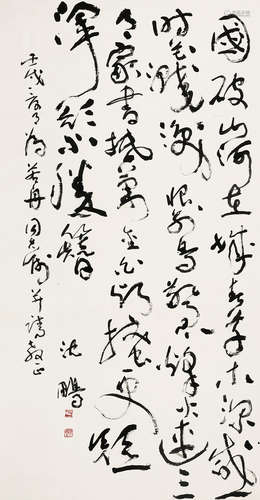 國破山河在城春草木深感
時花濺淚恨别鳥驚心烽火連三
月家書抵萬金白頭搔更短
渾欲不勝簪
壬戌為若同志并請教正
沈鵬